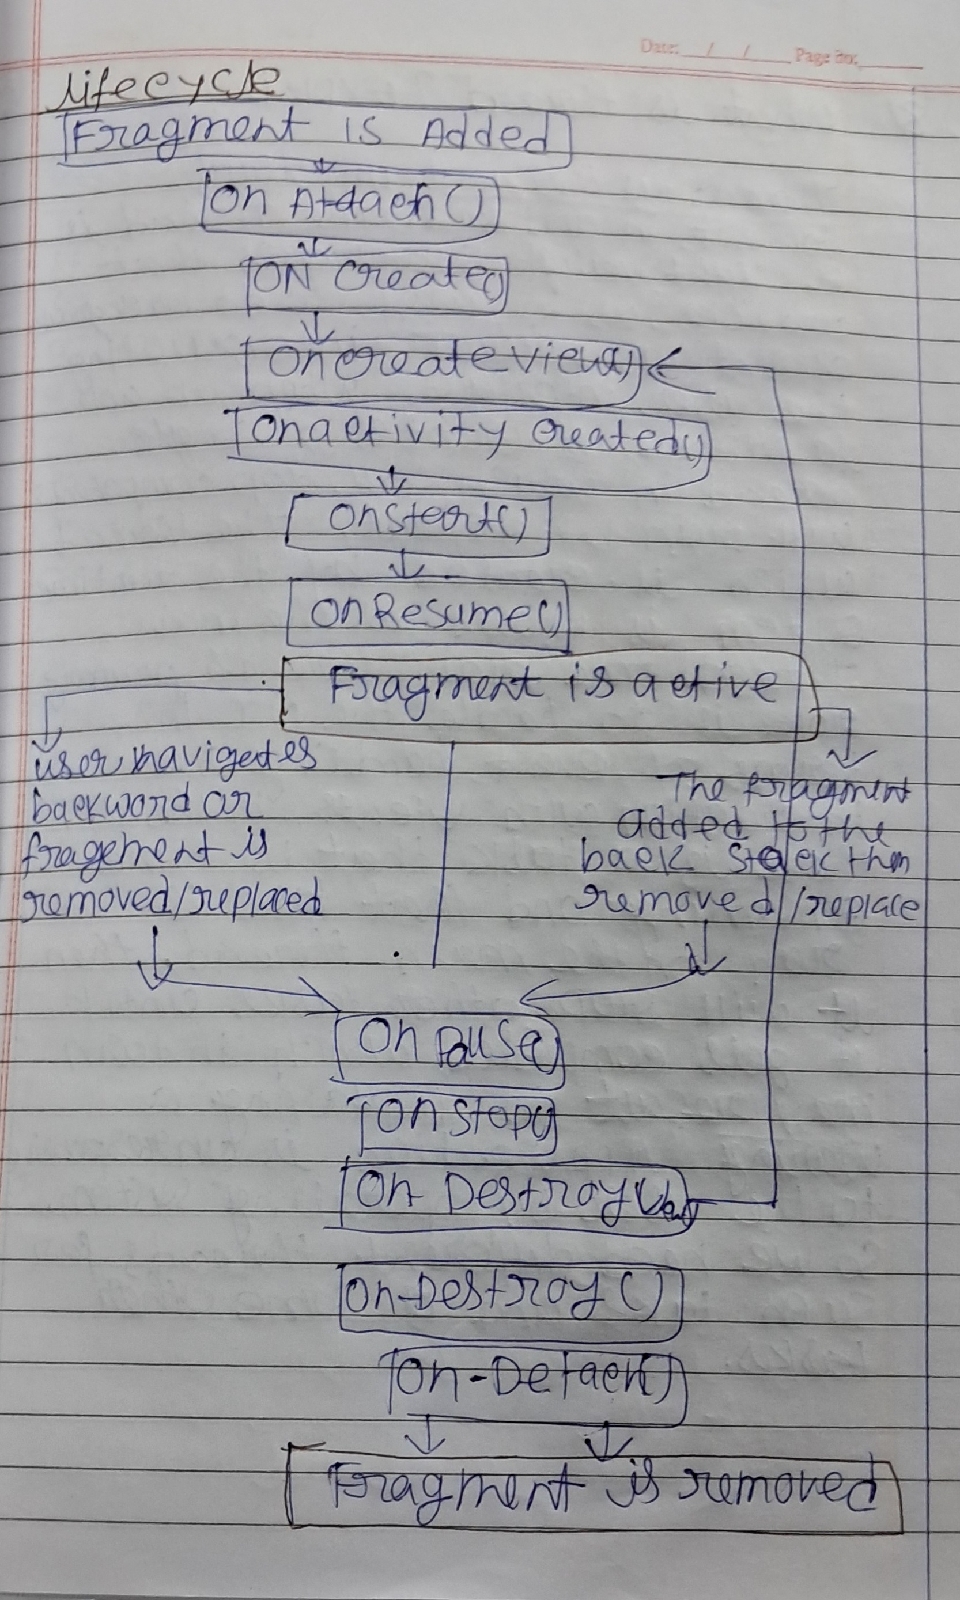 Date: / / Page No:
Lifecycle
Fragment is Added
On Attach()
ON Create()
On create view()
On activity created()
On Start()
On Resume()
Fragment is active
user navigates
backword or
fragement is
removed/replaced
The fragment
added to the
back stack then
removed/replace
On Pause()
On Stop()
On Destroy View()
On-Destroy()
On-Detach()
Fragment is removed